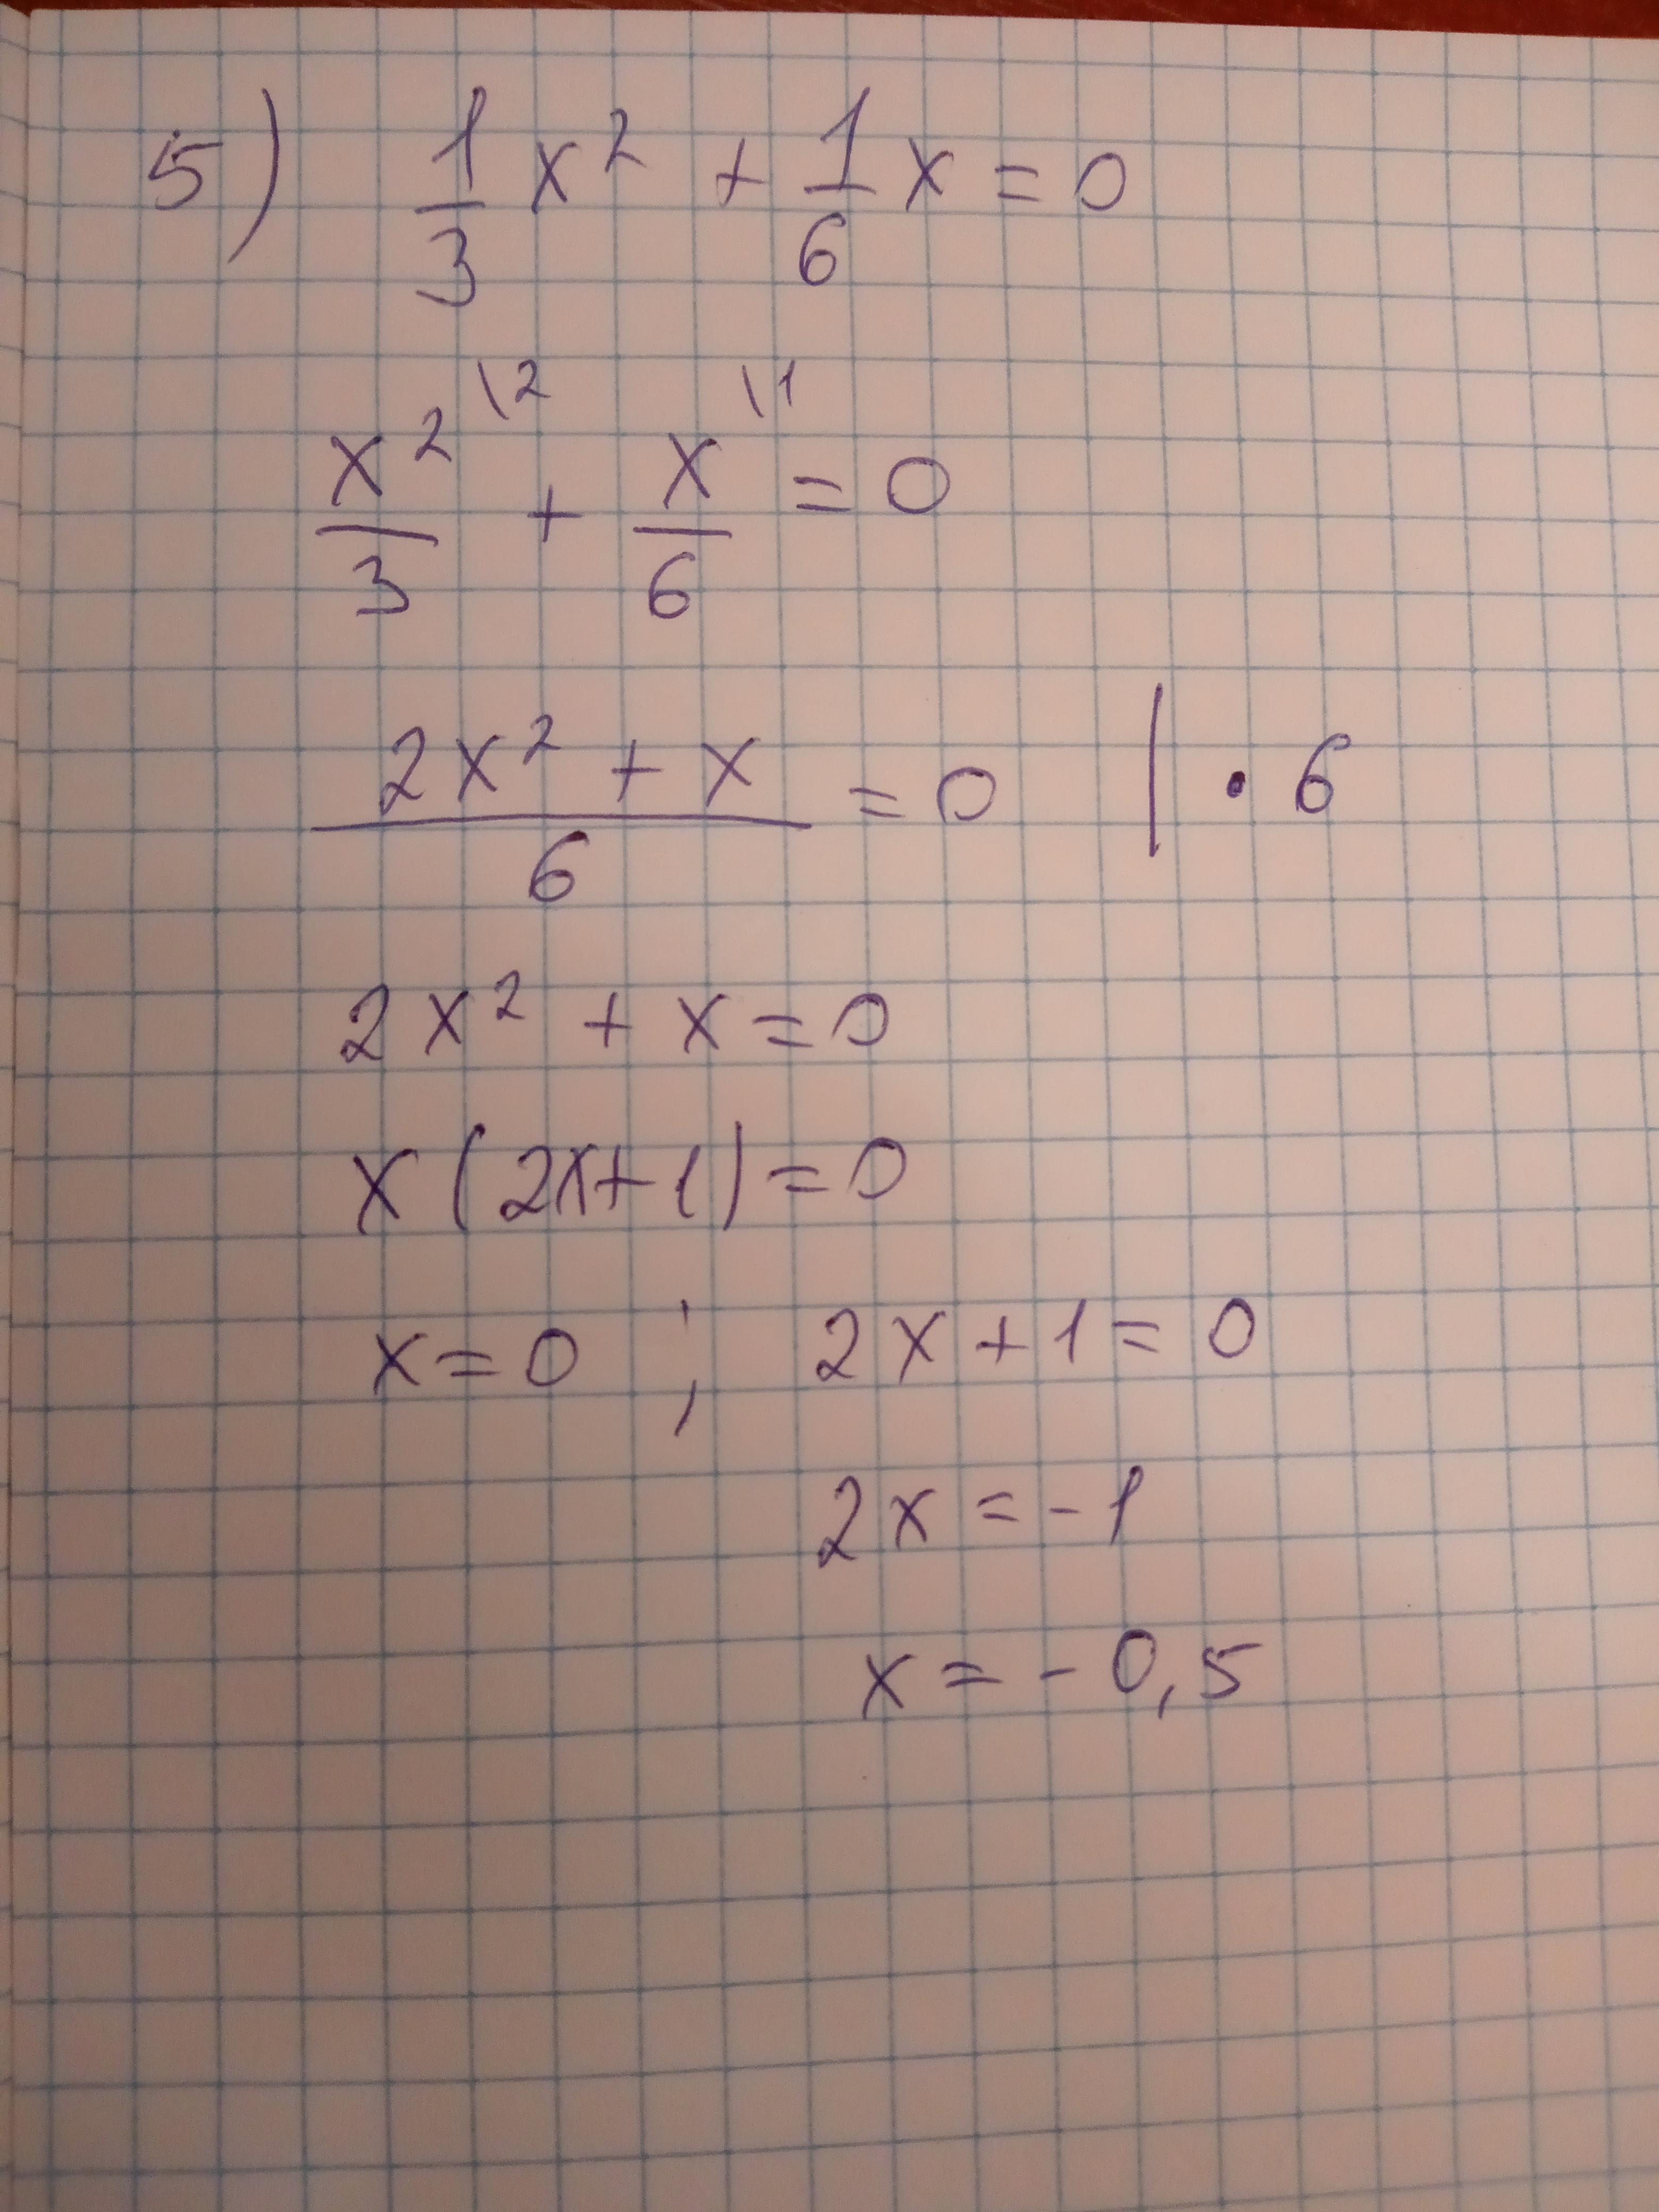 5) 1/3 x² + 1/6 x = 0
x²\2/3 + x\1/6 = 0
(2x² + x)/6 = 0 | · 6
2x² + x = 0
x(2x+1) = 0
x = 0 ; 2x + 1 = 0
2x = -1
x = -0,5